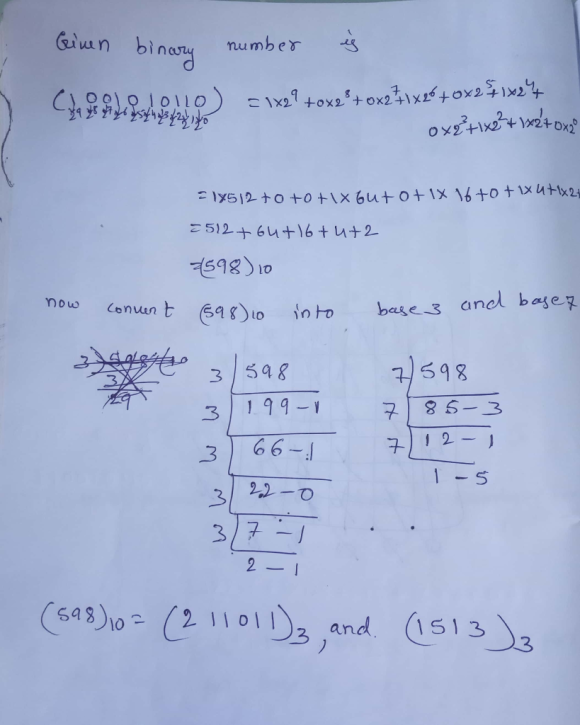 Given binary number is
(1001010110) = 1×2⁹+0×2⁸+0×2⁷+1×2⁶+0×2⁵+1×2⁴+
2⁹ 2⁸ 2⁷ 2⁶ 2⁵ 2⁴ 2³ 2² 2¹ 2⁰
0×2³+1×2²+1×2¹+0×2⁰
=1×512+0+0+1×64+0+1×16+0+1×4+1×2+
=512+64+16+4+2
=(598)10
now convert (598)10 into base 3 and base 7
3 | 598
3 | 199-1
3 | 66-1
3 | 22-0
3 | 7-1
2-1
7 | 598
7 | 85-3
7 | 12-1
1-5
(598)10 = (211011)3, and. (1513)3